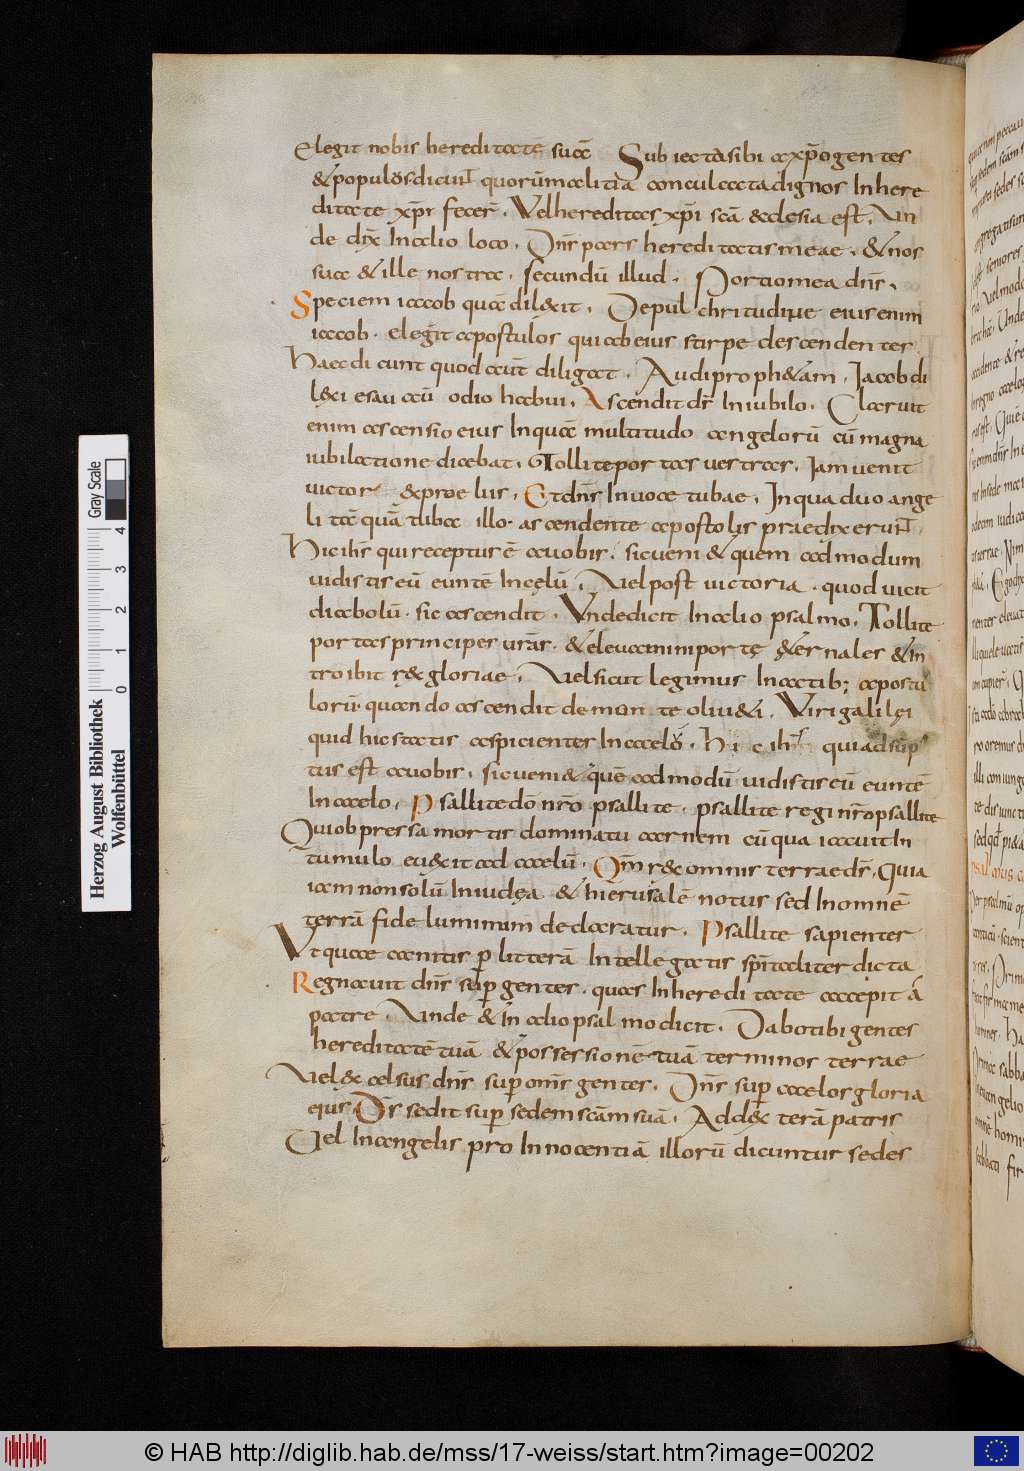 elegit nobis hereditatē suā Subiecta sibi a xp̄o gentes
& populos dicunt̄ quorū malitia conculcata dignos In here
ditate xp̄i fecer̄. Vel hereditas xp̄i sc̄a ecclesia est. Un
de dīx In alio loco. Dn̄s pars hereditatis meae. & nos
sua & ille nostra. secundū illud. Portio mea dn̄s.
Speciem iacob quā dilexit. De pulchritudine eius enim
iacob. elegit apostolos qui ab eius stirpe descendentes
Haec dicunt quod eūt diligat. Audi proph&am. Iacob di
lexi esau aū odio habui. Ascendit ds̄ In iubilo. Claruit
enim ascensio eius In quā multitudo angelorū cū magna
iubilatione dicebat. Tollite portas vestras. Iam venit
victor & proelius. Et dn̄s In voce tubae. In qua duo ange
li tāquā tuba illo. ascendente apostolis praedixerunt̄.
Hic ih̄s qui receptus ē a uobis. sic ueni& quem ad modum
uidistis eū euntē In cęlū. Uel post uictoria. quod uicit
diabolū. sic ascendit. Unde dicit In alio psalmo. Tollite
portas principes ur̄as. & eleuamini portę ęternales & in
troibit rex gloriae. Uel sicut legimus In actib; apostu
lorū. quando ascendit de monte oliu&i. Viri galilęi
quid hic statis aspicientes In caelū. Hic ih̄s qui adsūp
tus est a uobis. sic ueni& quē ad modū uidistis eū euntē
In caelo. Psallite dō nr̄o psallite. psallite regi nr̄o psallite
Qui ob pressa mortis dominatu carnem cū qua iacuit In
tumulo euexit ad caelū. Qm̄ rex omnis terrae ds̄. Quia
iam non solū In iudęa & hierusalē notus sed In omnē
terrā fide luminum declaratur. Psallite sapienter
Ut quae canitis p̄ litterā Intellegatis sp̄italiter dicta
Regnauit dn̄s sup̄ gentes. quas In hereditate accepit ā
patre. Unde & In alio psalmo dicit. Dabo tibi gentes
hereditatē tuā & possessionē tuā terminos terrae
Uel excelsus dn̄s sup̄ om̄s gentes. Dn̄s sup̄ caelos gloria
eius. Ds̄ sedit sup̄ sedem scām suā. Ad dexterā patris
Uel In angelis pro Innocentiā illorū dicuntur sedes
Gray Scale
4 3 2 1 0
Herzog August Bibliothek
Wolfenbüttel
© HAB http://diglib.hab.de/mss/17-weiss/start.htm?image=00202